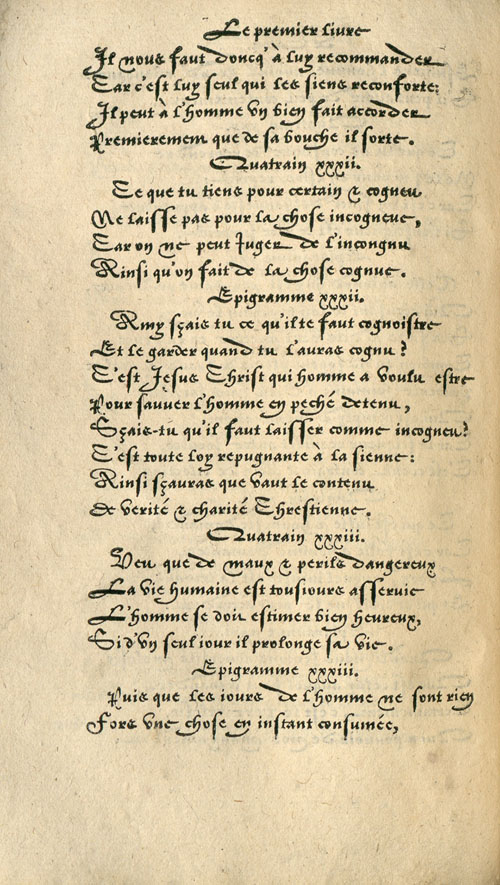 Le premier liure
Il nous faut doncq' à luy recommander
Car c'est luy seul qui les siens reconforte:
Il peut à l'homme vn bien fait accorder
Premierement que de sa bouche il sorte.
Quatrain xxxii.
Ce que tu tiens pour certain & cogneu
Ne laisse pas pour la chose incogneue,
Car on ne peut iuger de l'incongnu
Ainsi qu'on fait de la chose cognue.
Epigramme xxxii.
Amy sçais tu ce qu'il te faut cognoistre
Et le garder quand tu l'auras cognu?
C'est Jesus Christ qui homme a voulu estre
Pour sauuer l'homme en peché detenu,
Sçais-tu qu'il faut laisser comme incogneu?
C'est toute loy repugnante à la sienne:
Ainsi sçauras que vaut le contenu
de verité & charité Chrestienne.
Quatrain xxxiii.
Veu que de maux & perils dangereux
La vie humaine est tousiours asseruie
L'homme se doit estimer bien heureux,
Si d'vn seul iour il prolonge sa vie.
Epigramme xxxiii.
Puis que les iours de l'homme ne sont rien
Fors vne chose en instant consumée,